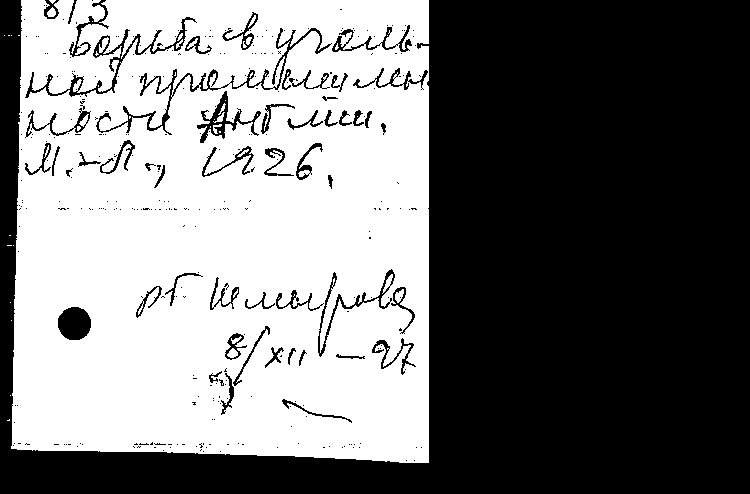 8/3
Борьба в уголь-
ной промышлен
ности Англии.
М.-Л., 1926.
8/XII - 27